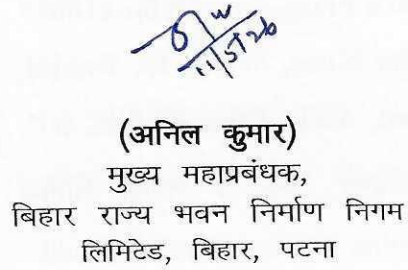 11/5/26
(अनिल कुमार)
मुख्य महाप्रबंधक,
बिहार राज्य भवन निर्माण निगम
लिमिटेड, बिहार, पटना